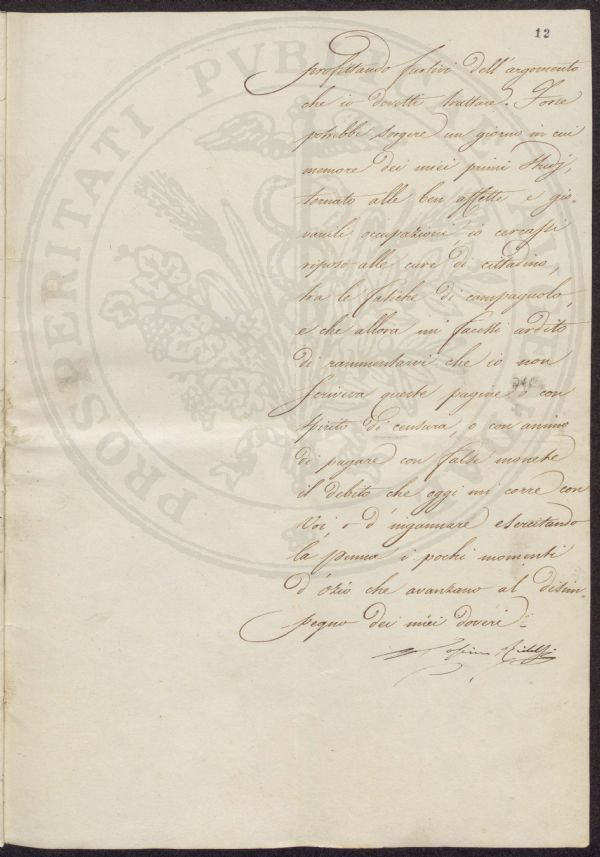 12
PROSPERITATI PVBLICAE
profittando fuor di dell'argomento
che io dovetti trattare. Forse
potrebbe sorgere un giorno in cui
memore dei miei primi Studj,
tornato alle ben affette e gio-
vanili occupazioni, io cercassi
riposo alle cure di cittadino,
tra le fatiche di campagnolo,
e che allora mi facessi ardito
di rammentarvi che io non
scriveva queste pagine o con
spirito di censura, o con animo
di pagare con false monete
il debito che oggi mi corre con
Voi, o d'ingannare esercitando
la penna i pochi momenti
d'ozio che avanzano al disim-
pegno dei miei doveri.
Cosimo Ridolfi